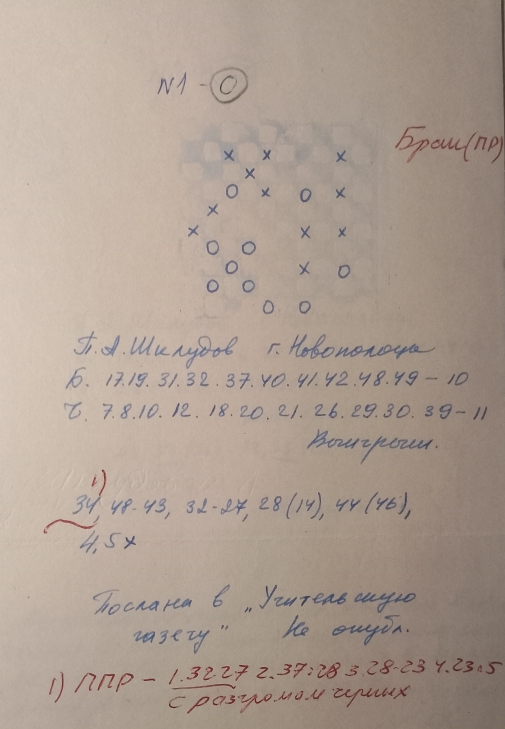 N1 - 0
Брак (ПР)
П. А. Шклудов г. Новополоцк
Б. 17.19.31.32.37.40.41.42.48.49 - 10
Ч. 7.8.10.12.18.20.21.26.29.30.39 - 11
Выигрыш.
1)
34, 48-43, 32-27, 28 (14), 44 (46),
4, 5x
Послана в „Учительскую
газету" Не опубл.
1) ППР - 1.32-27 2.37:28 3.28-23 4.23:5
с разгромом черных